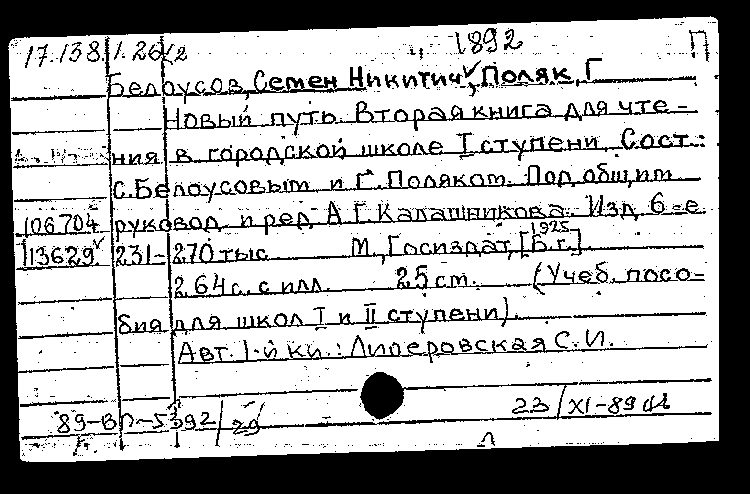 17.138.1.26/2 1892 П
Белоусов, Семен Никитич, Поляк, Г
Новый путь. Вторая книга для чте-
ния в городской школе I ступени. Сост.:
С. Белоусовым и Г. Поляком. Под общим
106704 руковод. и ред. А.Г. Калашникова. Изд. 6-е
1925
113629 231-270 тыс М., Госиздат, [Б.г.].
264 с. с илл. 25 ст. (Учеб. посо-
бия для школ I и II ступени).
Авт. 1-й кн.: Липеровская С.И.
89-ВП-5392/29 23/XI-89